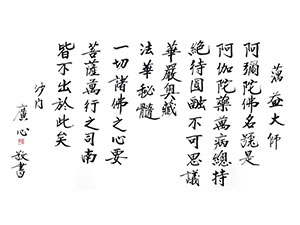 蕅益大師
阿彌陀佛名號是
阿伽陀藥萬病總持
絕待圓融不可思議
華嚴奧藏
法華秘髓
一切諸佛之心要
菩薩萬行之司南
皆不出於此矣
沙門
廣心
敬書